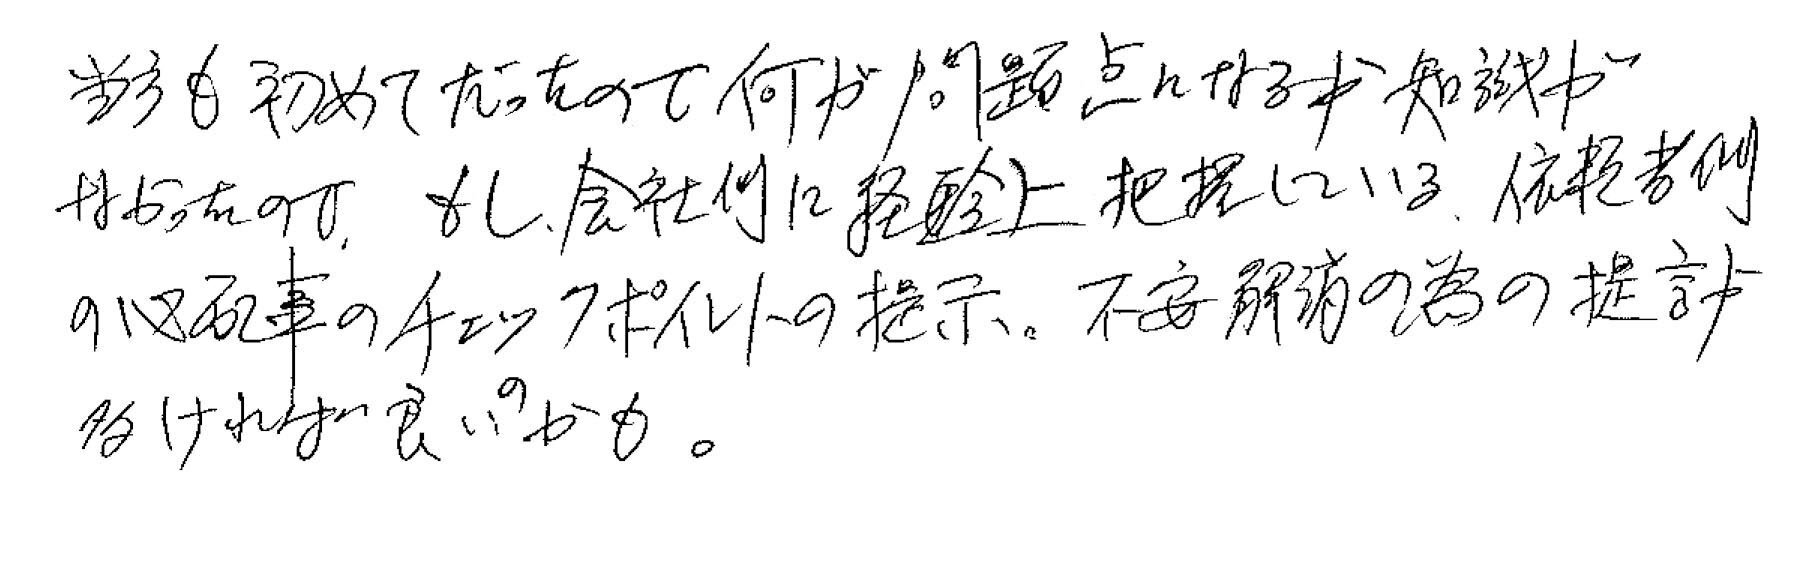 当方も初めてだったので何が問題点になるか知識が
なかったので、もし、会社側に経験上把握している、依頼者側
の心配事のチェックポイントの提示。不安解消の為の提言が
多ければ良いのかも。